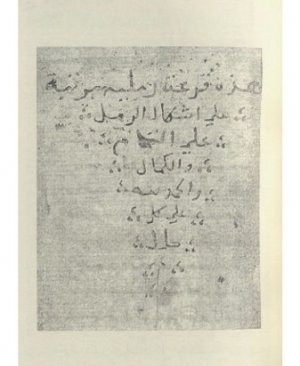 هذه قرعة رملية مرتبة
على اشكال الرمل
على التمام
والكمال
والحمد لله
على كل
حال
تم